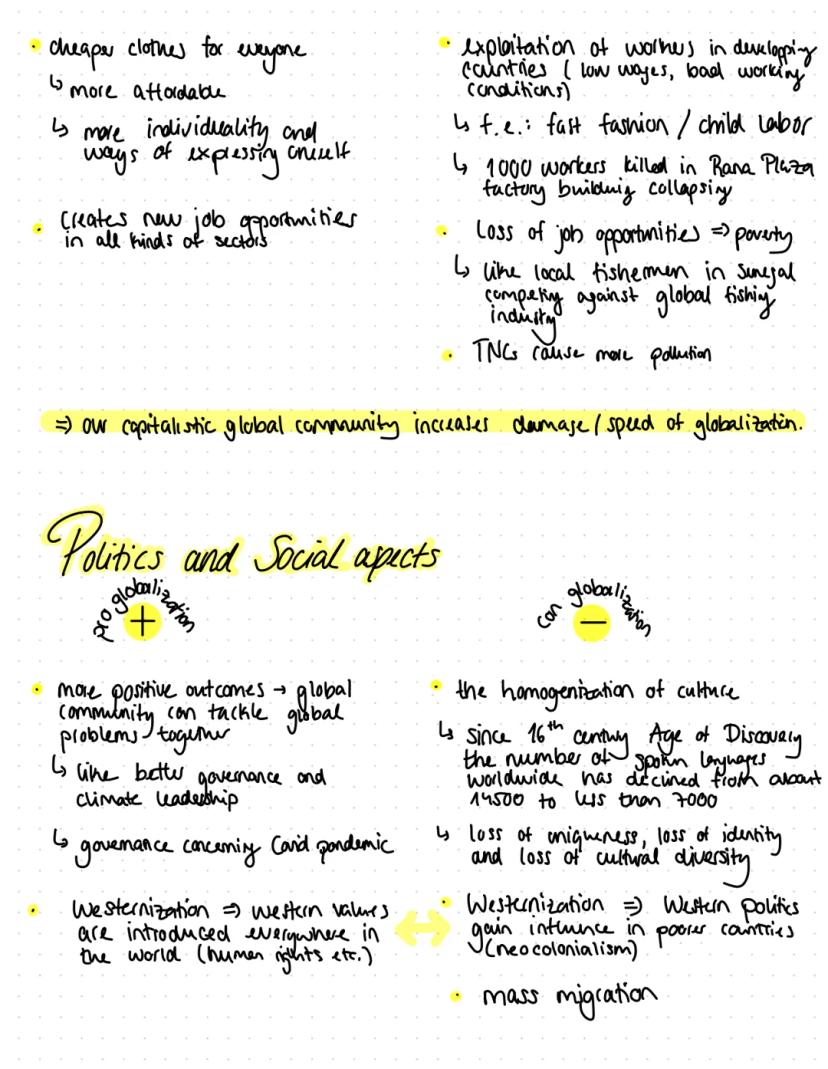 • cheaper clothes for everyone
↳ more affordable
↳ more individuality and
ways of expressing oneself
• creates new job opportunities
in all kinds of sectors
• exploitation of workers in developping
countries ( low wages, bad working
conditions)
↳ f.e.: fast fashion / child labor
↳ 1000 workers killed in Rana Plaza
factory building collapsing
• Loss of job opportunities => poverty
↳ like local fishermen in Senegal
competing against global fishing
industry
• TNCs cause more pollution
=> our capitalistic global community increases damage / speed of globalization.
Politics and Social apects
pro globalization
+
con globalization
−
• more positive outcomes → global
community can tackle global
problems together
↳ like better governance and
climate leadership
↳ governance concerning Covid pandemic
• Westernization => western values
are introduced everywhere in
the world (human rights etc.)
• the homogenization of culture
↳ since 16th century Age of Discovery
the number of spoken languages
worldwide has declined from about
14500 to less than 7000
↳ loss of uniqueness, loss of identity
and loss of cultural diversity
• Westernization => Western politics
gain influence in poorer countries
(neocolonialism)
• mass migration